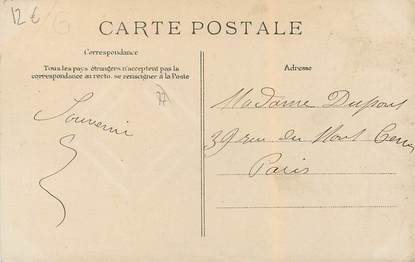 12 €
CARTE POSTALE
Correspondance
Tous les pays étrangers n'acceptent pas la
correspondance au recto, se renseigner à la Poste
Souvenir
Adresse
Madame Dupont
39 rue du Mont Cenis
Paris